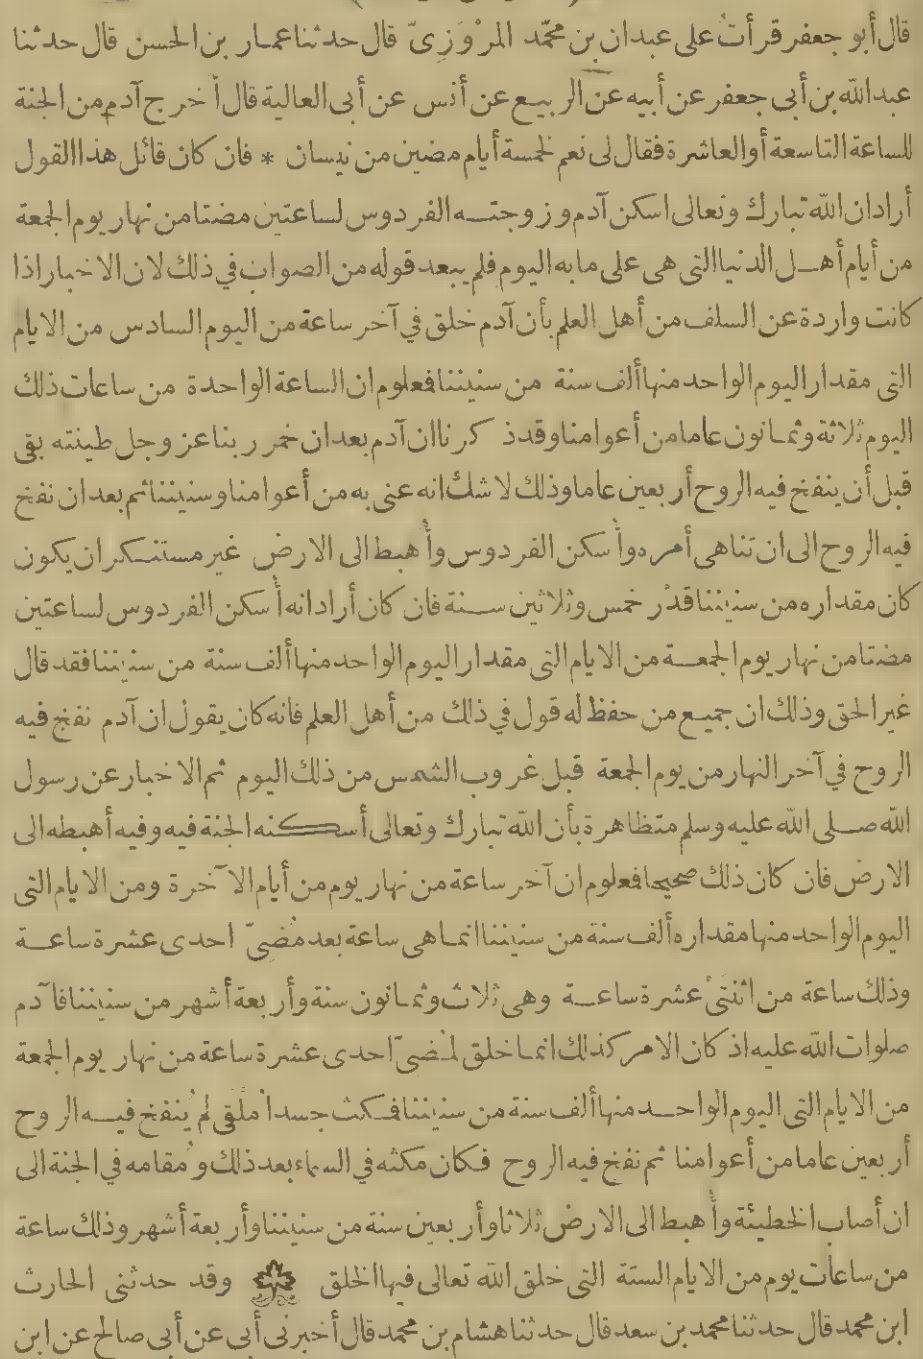 قال أبو جعفر قرأت على عبدان بن محمّد المرْوَزِىّ قال حدثنا عمار بن الحسن قال حدثنا
عبد الله بن أبى جعفر عن أبيه عن الربيع عن أنس عن أبى العالية قال أخرج آدم من الجنة
للساعة التاسعة أو العاشرة فقال لى نعم لخمسة أيام مضين من نيسان * فان كان قائل هذا القول
أراد ان الله تبارك وتعالى اسكن آدم وزوجته الفردوس لساعتين مضتا من نهار يوم الجمعة
من أيام أهل الدنيا التى هى على ما به اليوم فلم يبعد قوله من الصواب فى ذلك لان الاخبار اذا
كانت واردة عن السلف من أهل العلم بأن آدم خلق فى آخر ساعة من اليوم السادس من الايام
التى مقدار اليوم الواحد منها ألف سنة من سنيننا فعلوم ان الساعة الواحدة من ساعات ذلك
اليوم ثلاثة وثمانون عاما من أعوامنا وقد ذكرنا ان آدم بعد ان خمر ربنا عز وجل طينته بقى
قبل أن ينفخ فيه الروح أربعين عاما وذلك لا شك انه عنى به من أعوامنا وسنيننا ثم بعد ان نفخ
فيه الروح الى ان تناهى أمره وأُسكن الفردوس وأُهبط الى الارض غير مستنكر ان يكون
كان مقداره من سنيننا قدْر خمس وثلاثين سنة فان كان أراد انه أُسكن الفردوس لساعتين
مضتا من نهار يوم الجمعة من الايام التى مقدار اليوم الواحد منها ألف سنة من سنيننا فقد قال
غير الحق وذلك ان جميع من حفظ له قول فى ذلك من أهل العلم فانه كان يقول ان آدم نفخ فيه
الروح فى آخر النهار من يوم الجمعة قبل غروب الشمس من ذلك اليوم ثم الاخبار عن رسول
الله صلى الله عليه وسلم متظاهرة بأن الله تبارك وتعالى أسكنه الجنة فيه وفيه أهبطه الى
الارض فان كان ذلك صحيحا فعلوم ان آخر ساعة من نهار يوم من أيام الآخرة ومن الايام التى
اليوم الواحد منها مقداره ألف سنة من سنيننا انما هى ساعة بعد مُضىّ احدى عشرة ساعة
وذلك ساعة من اثنتىْ عشرة ساعة وهى ثلاث وثمانون سنة وأربعة أشهر من سنيننا فآدم
صلوات الله عليه اذ كان الامر كذلك انما خلق لمضىّ احدى عشرة ساعة من نهار يوم الجمعة
من الايام التى اليوم الواحد منها ألف سنة من سنيننا فمكث جسدا مُلْقى لم يُنفخ فيه الروح
أربعين عاما من أعوامنا ثم نفخ فيه الروح فكان مكثه فى السماء بعد ذلك ومُقامه فى الجنة الى
ان أصاب الخطيئة وأُهبط الى الارض ثلاثا وأربعين سنة من سنيننا وأربعة أشهر وذلك ساعة
من ساعات يوم من الايام الستة التى خلق الله تعالى فيها الخلق وقد حدثنى الحارث
ابن محمد قال حدثنا محمد بن سعد قال حدثنا هشام بن محمد قال أخبرنى أبى عن أبى صالح عن ابن